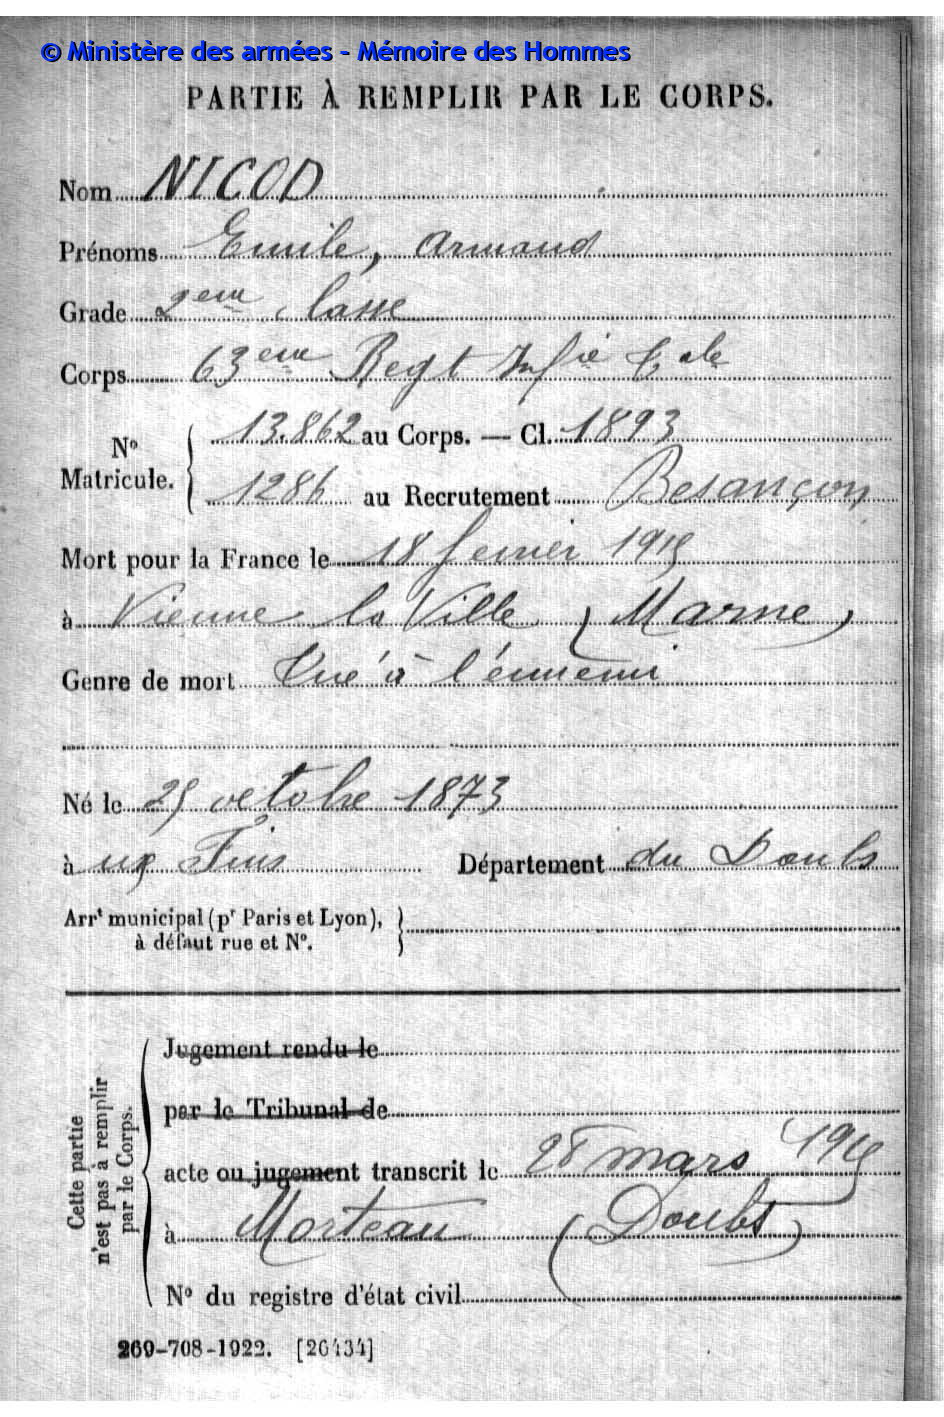 © Ministère des armées - Mémoire des Hommes
PARTIE À REMPLIR PAR LE CORPS.
Nom NICOD
Prénoms Emile, Armand
Grade 2eme classe
Corps 63eme Regt Infie Cale
No Matricule. 13.862 au Corps. — Cl. 1893
1286 au Recrutement Besançon
Mort pour la France le 18 fevrier 1915
à Vienne la Ville (Marne)
Genre de mort Tué à l'ennemi
Né le 25 octobre 1873
à ux Fins Département du Doubs
Arrt municipal (pr Paris et Lyon),
à défaut rue et No.
Cette partie
n'est pas à remplir
par le Corps.
Jugement rendu le
par le Tribunal de
acte ou jugement transcrit le 28 mars 1915
à Morteau (Doubs)
No du registre d'état civil
269-708-1922. [26434]